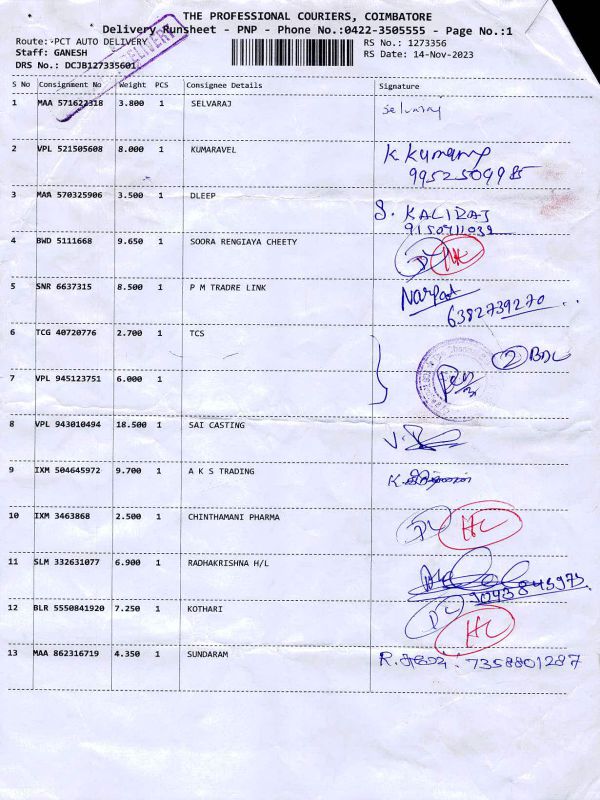 THE PROFESSIONAL COURIERS, COIMBATORE
Delivery Runsheet - PNP - Phone No.:0422-3505555 - Page No.:1
Route: PCT AUTO DELIVERY RS No.: 1273356
Staff: GANESH RS Date: 14-Nov-2023
DRS No.: DCJB127335601
S No Consignment No Weight PCS Consignee Details Signature
1 MAA 571622318 3.800 1 SELVARAJ Selvaraj
2 VPL 521505608 8.000 1 KUMARAVEL K. Kumarup
9952509985
3 MAA 570325906 3.500 1 DLEEP S. KALIRAJ
9150711032
4 BWD 5111668 9.650 1 SOORA RENGIAYA CHEETY
5 SNR 6637315 8.500 1 P M TRADRE LINK Narpat
6382739270
6 TCG 40720776 2.700 1 TCS 2
7 VPL 945123751 6.000 1
8 VPL 943010494 18.500 1 SAI CASTING
9 IXM 504645972 9.700 1 A K S TRADING
10 IXM 3463868 2.500 1 CHINTHAMANI PHARMA DL HL
11 SLM 332631077 6.900 1 RADHAKRISHNA H/L
9043843973
12 BLR 5550841920 7.250 1 KOTHARI DL HL
13 MAA 862316719 4.350 1 SUNDARAM 7358801287